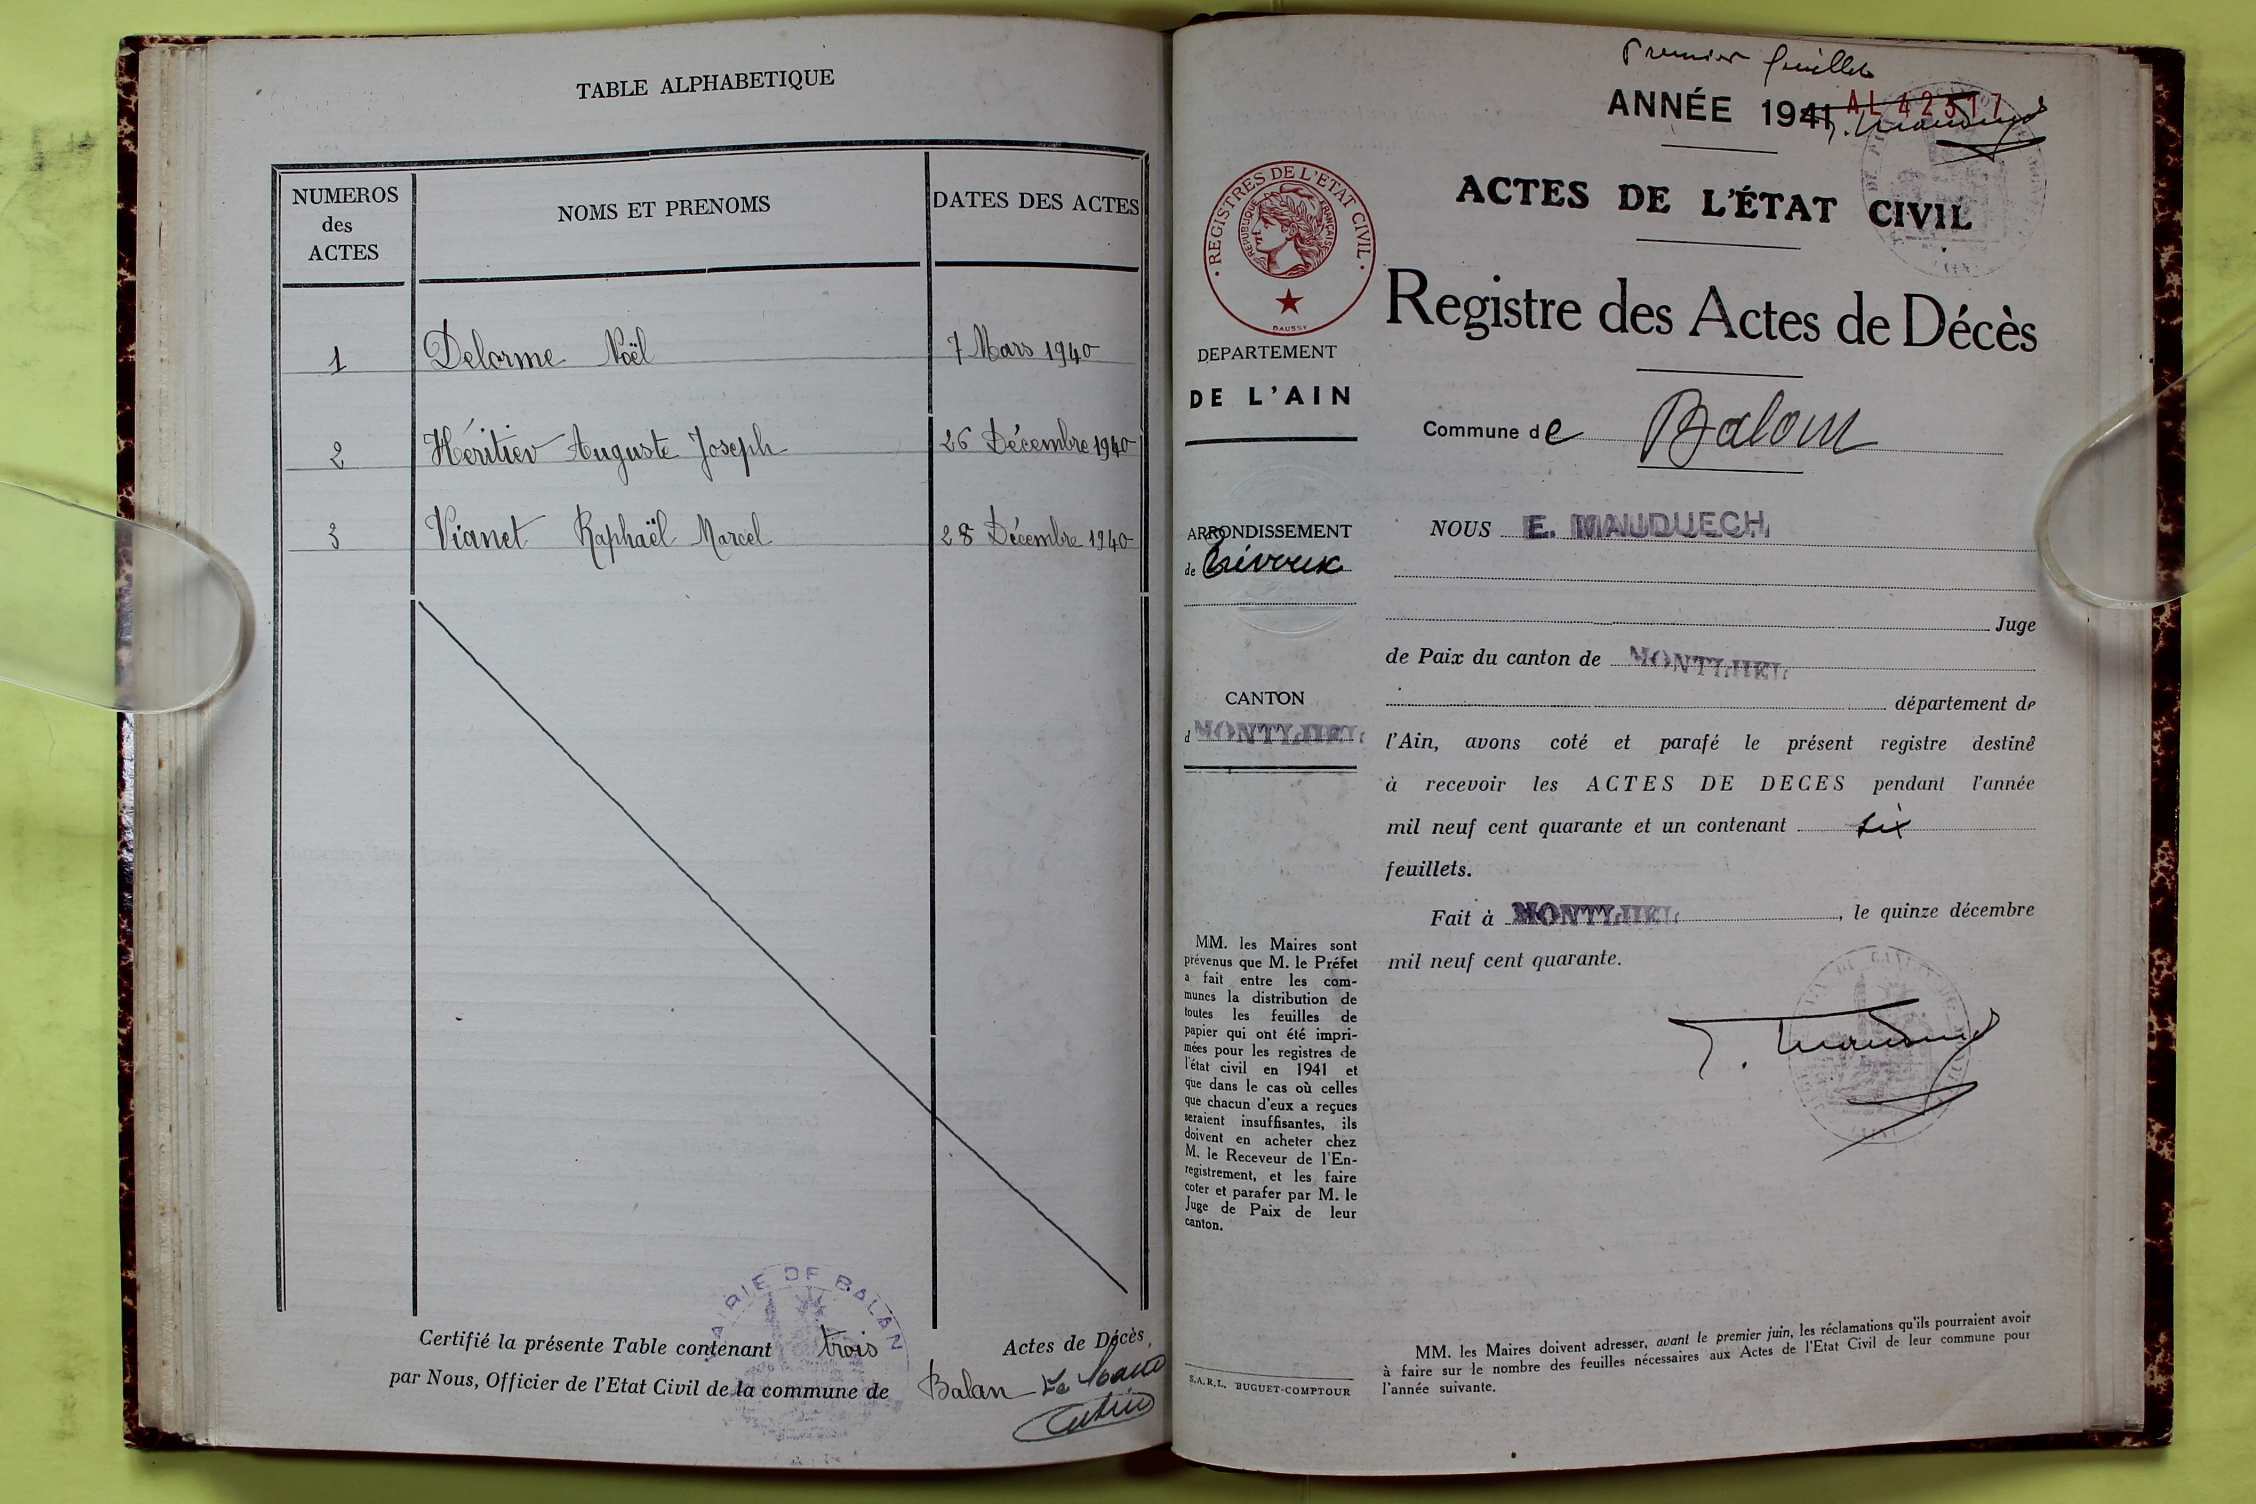 TABLE ALPHABETIQUE
NUMEROS des ACTES
NOMS ET PRENOMS
DATES DES ACTES
1 Delorme Noël 7 Mars 1940
2 Héritier Auguste Joseph 26 Décembre 1940
3 Vianet Raphaël Marcel 28 Décembre 1940
Certifié la présente Table contenant trois Actes de Décès,
par Nous, Officier de l'Etat Civil de la commune de Balan Le Maire
MAIRIE DE BALAN
Premier feuillet
ANNÉE 1941
AL 42317
ACTES DE L'ÉTAT CIVIL
Registre des Actes de Décès
· REGISTRES DE L'ETAT CIVIL ·
REPUBLIQUE FRANÇAISE
DAUSSY
DEPARTEMENT
DE L'AIN
Commune de Balan
ARRONDISSEMENT
de Trévoux
CANTON
d MONTLUEL
MM. les Maires sont
prévenus que M. le Préfet
a fait entre les com-
munes la distribution de
toutes les feuilles de
papier qui ont été impri-
mées pour les registres de
l'état civil en 1941 et
que dans le cas où celles
que chacun d'eux a reçues
seraient insuffisantes, ils
doivent en acheter chez
M. le Receveur de l'En-
registrement, et les faire
coter et parafer par M. le
Juge de Paix de leur
canton.
S.A.R.L. BUGUET-COMPTOUR
NOUS E. MAUDUECH
Juge
de Paix du canton de MONTLUEL
département de
l'Ain, avons coté et parafé le présent registre destiné
à recevoir les ACTES DE DECES pendant l'année
mil neuf cent quarante et un contenant six
feuillets.
Fait à MONTLUEL, le quinze décembre
mil neuf cent quarante.
MM. les Maires doivent adresser, avant le premier juin, les réclamations qu'ils pourraient avoir
à faire sur le nombre des feuilles nécessaires aux Actes de l'Etat Civil de leur commune pour
l'année suivante.